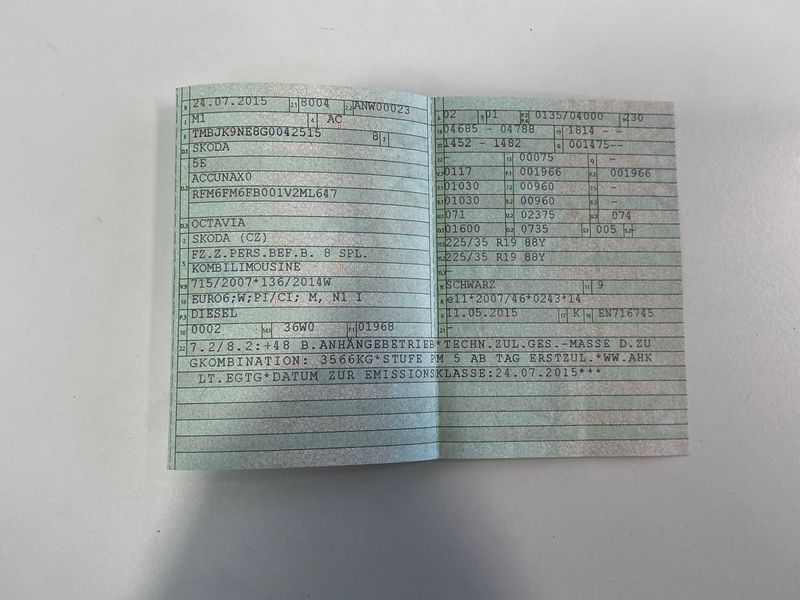 B 24.07.2015 2.1 8004 2.2 ANW00023
J M1 4 AC
E TMBJK9NE8G0042515 8 3
D.1 SKODA
5E
D.2 ACCUNAX0
RFM6FM6FB001V2ML647
D.3 OCTAVIA
2 SKODA (CZ)
5 FZ.Z.PERS.BEF.B. 8 SPL.
KOMBILIMOUSINE
V.9 715/2007*136/2014W
14 EURO6;W;PI/CI; M, N1 I
P.3 DIESEL
10 0002 14.1 36W0 P.1 01968
L 02 9 01 P.2 P.4 0135/04000 T 230
18 04685 - 04788 19 1814 - -
20 1452 - 1482 G 001475--
12 - 13 00075 Q -
V.7 0117 F.1 001966 F.2 001966
7.1 01030 7.2 00960 7.3 -
8.1 01030 8.2 00960 8.3 -
U.1 071 U.2 02375 U.3 074
O.1 01600 O.2 0735 S.1 005 S.2 -
15.1 225/35 R19 88Y
15.2 225/35 R19 88Y
15.3 -
R SCHWARZ 11 9
K e11*2007/46*0243*14
6 11.05.2015 17 K 16 EN716745
21 -
22 7.2/8.2:+48 B.ANHÄNGEBETRIEB*TECHN.ZUL.GES.-MASSE D.ZU
GKOMBINATION: 3566KG*STUFE PM 5 AB TAG ERSTZUL.*WW.AHK
LT.EGTG*DATUM ZUR EMISSIONSKLASSE:24.07.2015***